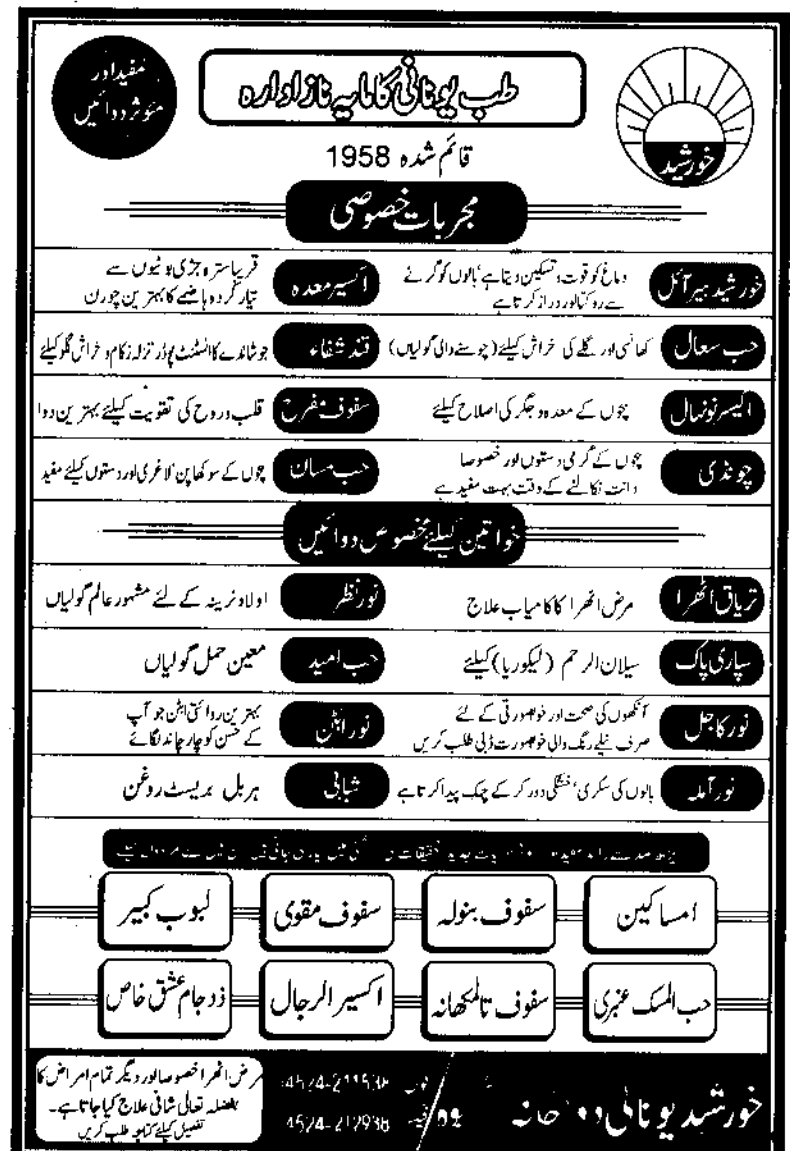 خورشید
طب یونانی کا مایہ ناز ادارہ
مفید اور
مئوثر دوائیں
قائم شدہ 1958
مجربات خصوصی
خورشید ہیر آئل
دماغ کو قوت و تسکین دیتا ہے‘ بالوں کو گرنے
سے روکتا اور دراز کرتا ہے
اکسیر معدہ
قریباً سترہ جڑی بوٹیوں سے
تیار کردہ ہاضمے کا بہترین چورن
حب سعال
کھانسی اور گلے کی خراش کیلئے (چوسنے والی گولیاں)
قند شفاء
جوشاندے کا انسٹنٹ پوڈر‘ نزلہ زکام و خراش گلو کیلئے
اکسیر نونہال
بچوں کے معدہ و جگر کی اصلاح کیلئے
سفوف مفرح
قلب و روح کی تقویت کیلئے بہترین دوا
چونڈی
بچوں کے گرمی دستوں اور خصوصا
دانت نکالنے کے وقت بہت مفید ہے
حب مسان
بچوں کے سوکھا پن‘ لاغری اور دستوں کیلئے مفید
خواتین کیلئے مخصوص دوائیں
تریاق اٹھرا
مرض اٹھرا کا کامیاب علاج
نور نظر
اولاد نرینہ کے لئے مشہور عالم گولیاں
سپاری پاک
سیلان الرحم (لیکوریا) کیلئے
حب امید
معین حمل گولیاں
نور کاجل
آنکھوں کی صحت اور خوبصورتی کے لئے
صرف نیلے رنگ والی خوبصورت ڈبی طلب کریں
نور ابٹن
بہترین روائتی ابٹن جو آپ
کے حسن کو چار چاند لگائے
نور آملہ
بالوں کی سکری‘ خشکی دور کر کے چمک پیدا کرتا ہے
شبابی
ہربل بریسٹ روغن
امساکین
سفوف بنولہ
سفوف مقوی
لبوب کبیر
حب المسک عنبری
سفوف تالمکھانہ
اکسیر الرجال
زدجام عشق خاص
خورشید یونانی دواخانہ
فون 4524-211538
4524-212938
مرض اٹھرا خصوصا اور دیگر تمام امراض کا
بفضلہ تعالیٰ شافی علاج کیا جاتا ہے۔
تفصیل کیلئے کتابچہ طلب کریں